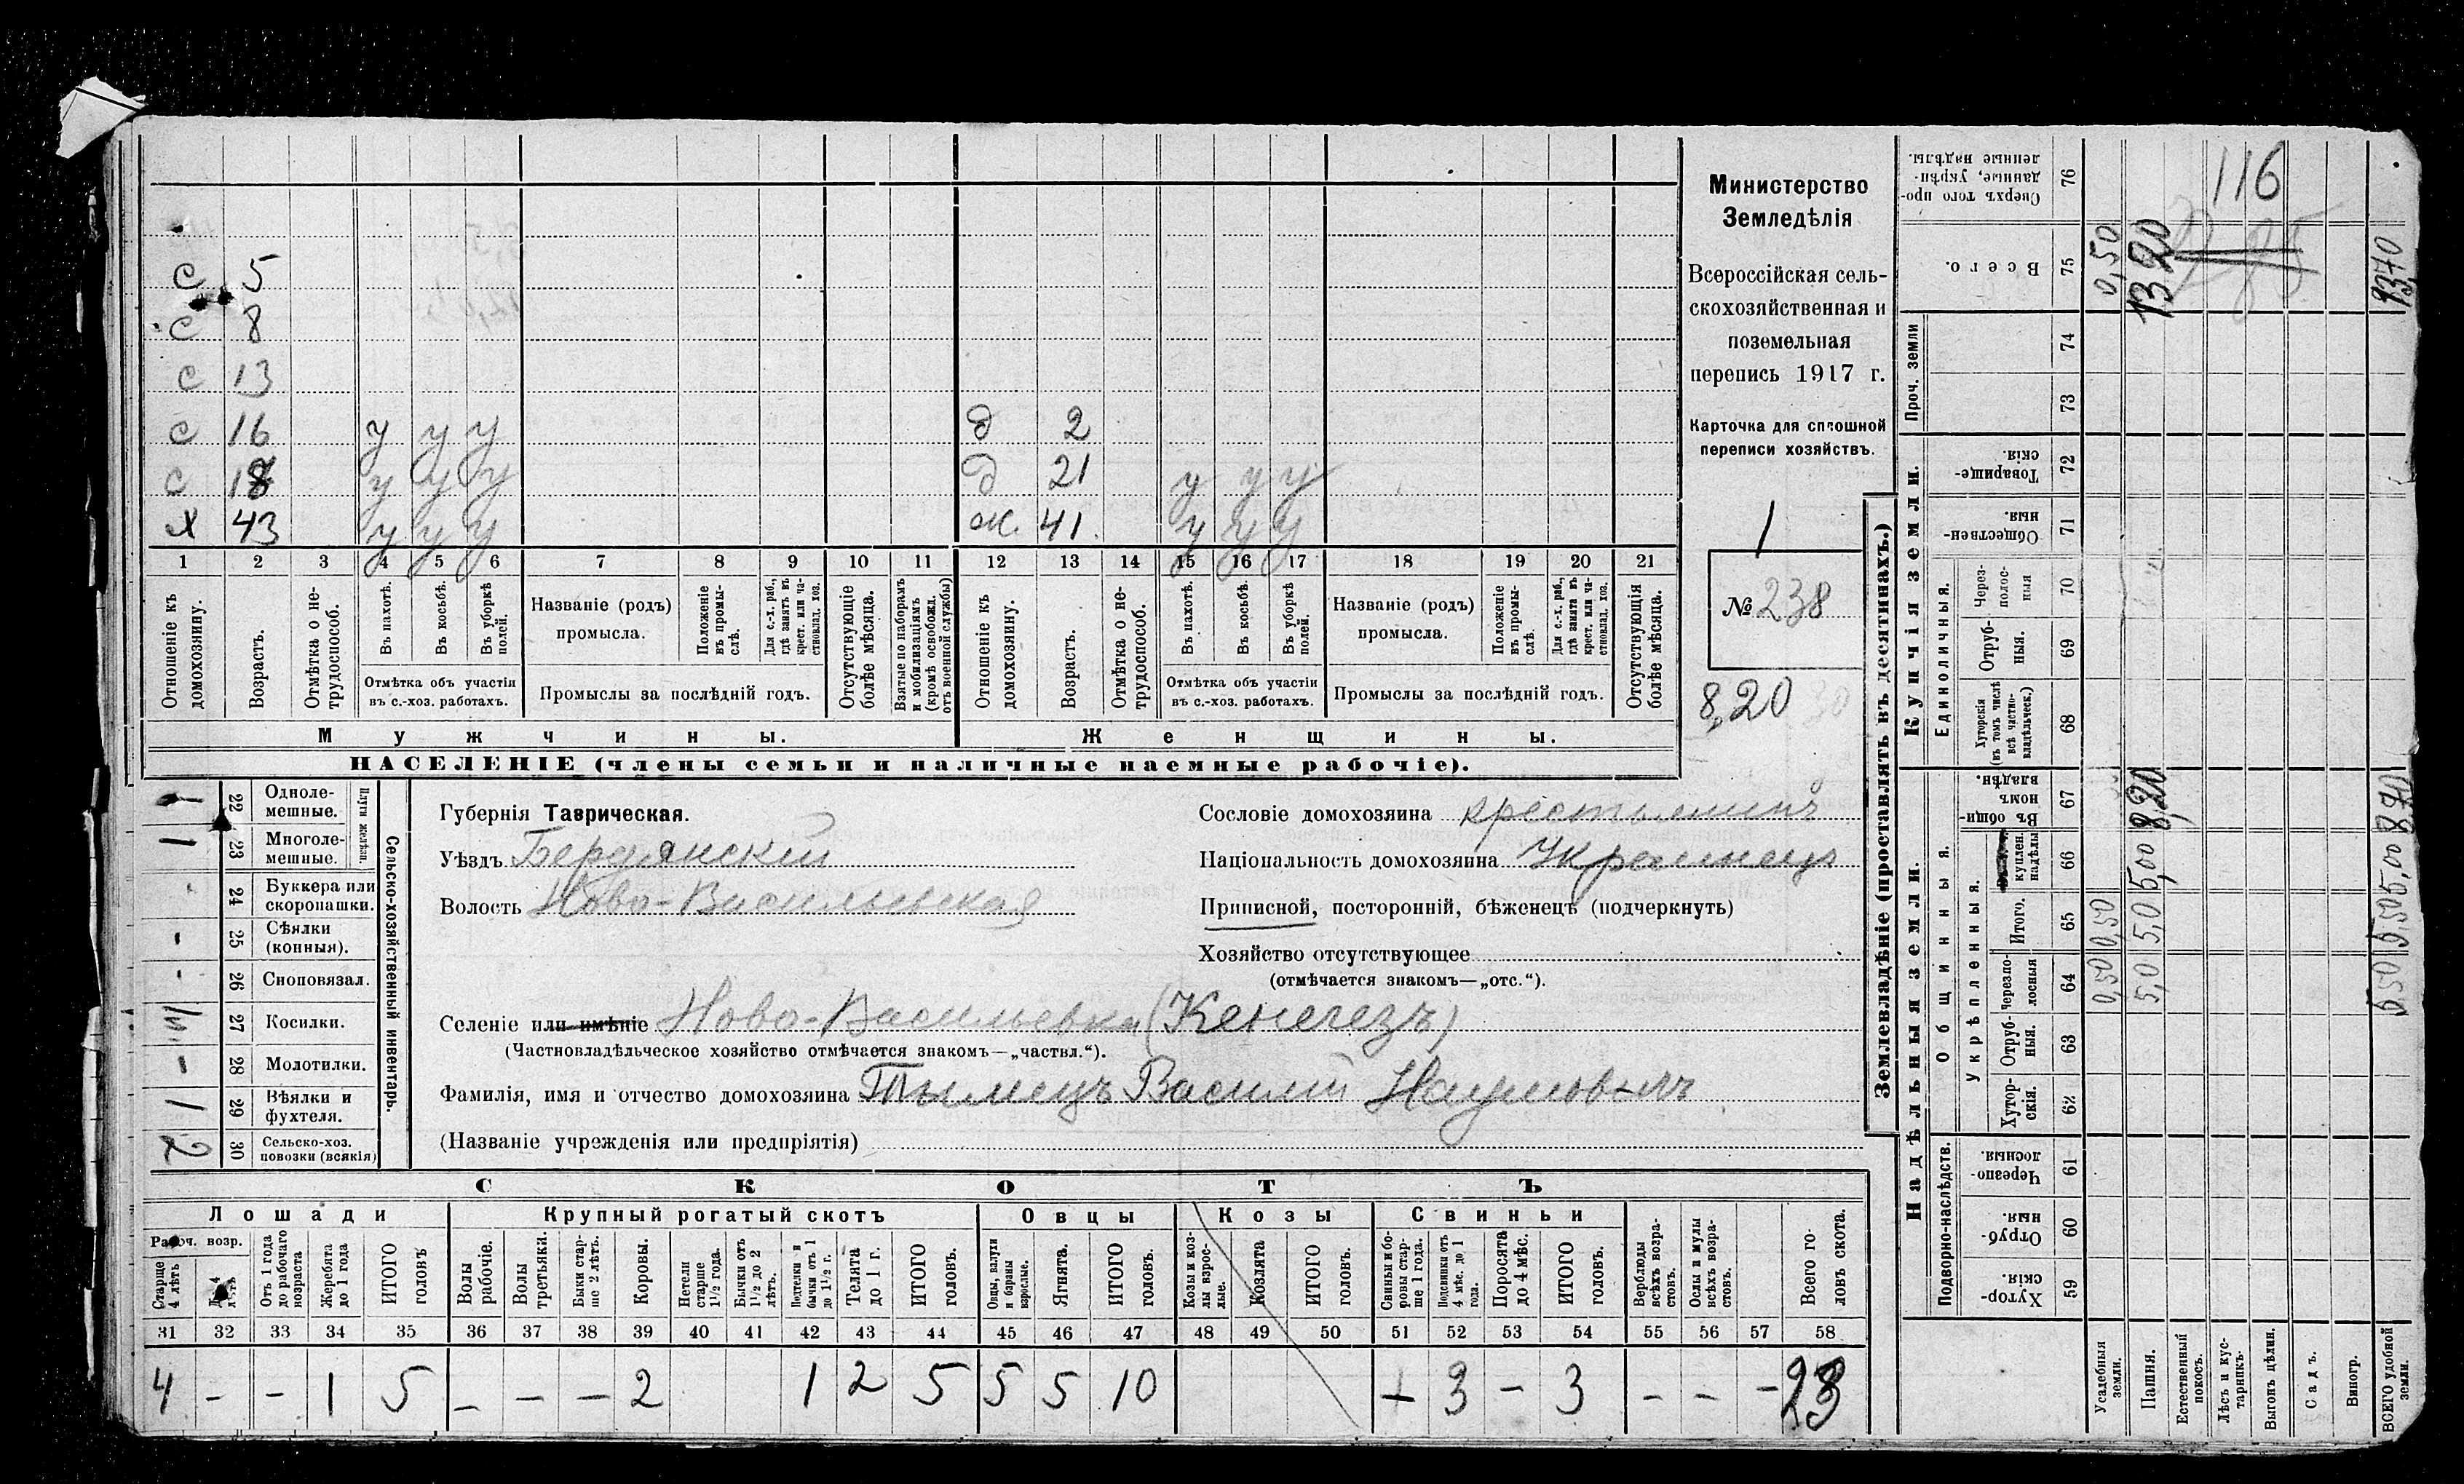 Министерство
Земледѣлія
Всероссійская сель-
скохозяйственная и
поземельная
перепись 1917 г.
Карточка для сплошной
переписи хозяйствъ.
1
№ 238
8,20
с 5
с 8
с 13
с 16 у у у д 2
с 18 у у у д 21 у у у
х 43 у у у ж. 41. у у у
1 2 3 4 5 6 7 8 9 10 11 12 13 14 15 16 17 18 19 20 21
Отношеніе къ домохозяину.
Возрастъ.
Отмѣтка о не-трудоспособ.
Въ пахотѣ.
Въ косьбѣ.
Въ уборкѣ полей.
Отмѣтка объ участіи
въ с.-хоз. работахъ.
Названіе (родъ)
промысла.
Положеніе въ промы-слѣ.
Для с.-х. раб., гдѣ занятъ въ крест. или ча-стновлад. хоз.
Промыслы за послѣдній годъ.
Отсутствующіе болѣе мѣсяца.
Взятые по наборамъ и мобилизаціямъ (кромѣ освобожд. отъ военной службы)
Отношеніе къ домохозяину.
Возрастъ.
Отмѣтка о не-трудоспособ.
Въ пахотѣ.
Въ косьбѣ.
Въ уборкѣ полей.
Отмѣтка объ участіи
въ с.-хоз. работахъ.
Названіе (родъ)
промысла.
Положеніе въ промы-слѣ.
Для с.-х. раб., гдѣ занята въ крест. или ча-стновлад. хоз.
Промыслы за послѣдній годъ.
Отсутствующія болѣе мѣсяца.
Мужчины. Женщины.
НАСЕЛЕНІЕ (члены семьи и наличные наемные рабочіе).
Сельско-хозяйственный инвентарь.
Плуги желѣзн.
1 22 Одноле-мешные.
1 23 Многоле-мешные.
24 Буккера или скоропашки.
- 25 Сѣялки (конныя).
- 26 Сноповязал.
27 Косилки.
- 28 Молотилки.
1 29 Вѣялки и фухтеля.
2 30 Сельско-хоз. повозки (всякія)
Губернія Таврическая.
Уѣздъ Бердянскій
Волость Ново-Васильевская
Сословіе домохозяина крестьянинъ
Національность домохозяина Украинецъ
Приписной, посторонній, бѣженецъ (подчеркнуть)
Хозяйство отсутствующее
(отмѣчается знакомъ—„отс.“).
Селеніе или имѣніе Ново-Васильевка (Кенегезъ)
(Частновладѣльческое хозяйство отмѣчается знакомъ—„частвл.“).
Фамилія, имя и отчество домохозяина Тымецъ Василий Наумовичъ
(Названіе учрежденія или предпріятія)
СКОТЪ
Лошади Крупный рогатый скотъ Овцы Козы Свиньи
Рабоч. возр.
Старше 4 лѣтъ
Отъ 1 года до рабочаго возраста
Жеребята до 1 года
ИТОГО головъ
Волы рабочіе.
Волы третьяки.
Быки стар-ше 2 лѣтъ.
Коровы.
Нетели старше 1½ года.
Бычки отъ 1½ до 2 лѣтъ.
Подтелки и бычки отъ 1 до 1½ г.
Телята до 1 г.
ИТОГО головъ.
Овцы, валухи и бараны взрослые.
Ягнята.
ИТОГО головъ.
Козы и коз-лы взрос-лые.
Козлята
ИТОГО головъ.
Свиньи и бо-ровы стар-ше 1 года.
Подсвинки отъ 4 мѣс. до 1 года.
Поросята до 4 мѣс.
ИТОГО головъ.
Верблюды всѣхъ возра-стовъ.
Ослы и мулы всѣхъ возра-стовъ.
Всего го-ловъ скота.
31 32 33 34 35 36 37 38 39 40 41 42 43 44 45 46 47 48 49 50 51 52 53 54 55 56 57 58
4 - - 1 5 - - - 2 1 2 5 5 5 10 - 3 - 3 - - - 23
Землевладѣніе (проставлять въ десятинахъ.)
Надѣльныя земли.
Купчія земли.
Проч. земли
Подворно-наслѣдств.
Общинныя.
Укрѣпленныя.
Единоличныя.
Сверхъ того про-данные, укрѣп-ленные надѣлы. 76
Всего. 75
74
73
Товарище-скія. 72
Обществен-ныя. 71
Через-полос-ныя 70
Отруб-ныя. 69
Хуторскія (въ томъ числѣ всѣ частно-владѣльческ.) 68
Въ общи-номъ владѣн. 67
куплен. надѣлы 66
Итого. 65
Черезпо-лосныя 64
Отруб-ныя. 63
Хутор-скія. 62
Черезпо-лосныя. 61
Отруб-ныя. 60
Хутор-скія. 59
116
Усадебныя земли. 0,50 0,50 0,50
Пашня. 5,0 5,0 5,00 8,20 13 20
Естественный покосъ.
Лѣсъ и кус-тарникъ.
Выгонъ цѣлин.
Садъ.
Виногр.
ВСЕГО удобной земли. 5,50 5,50 5,00 8,70 13,70